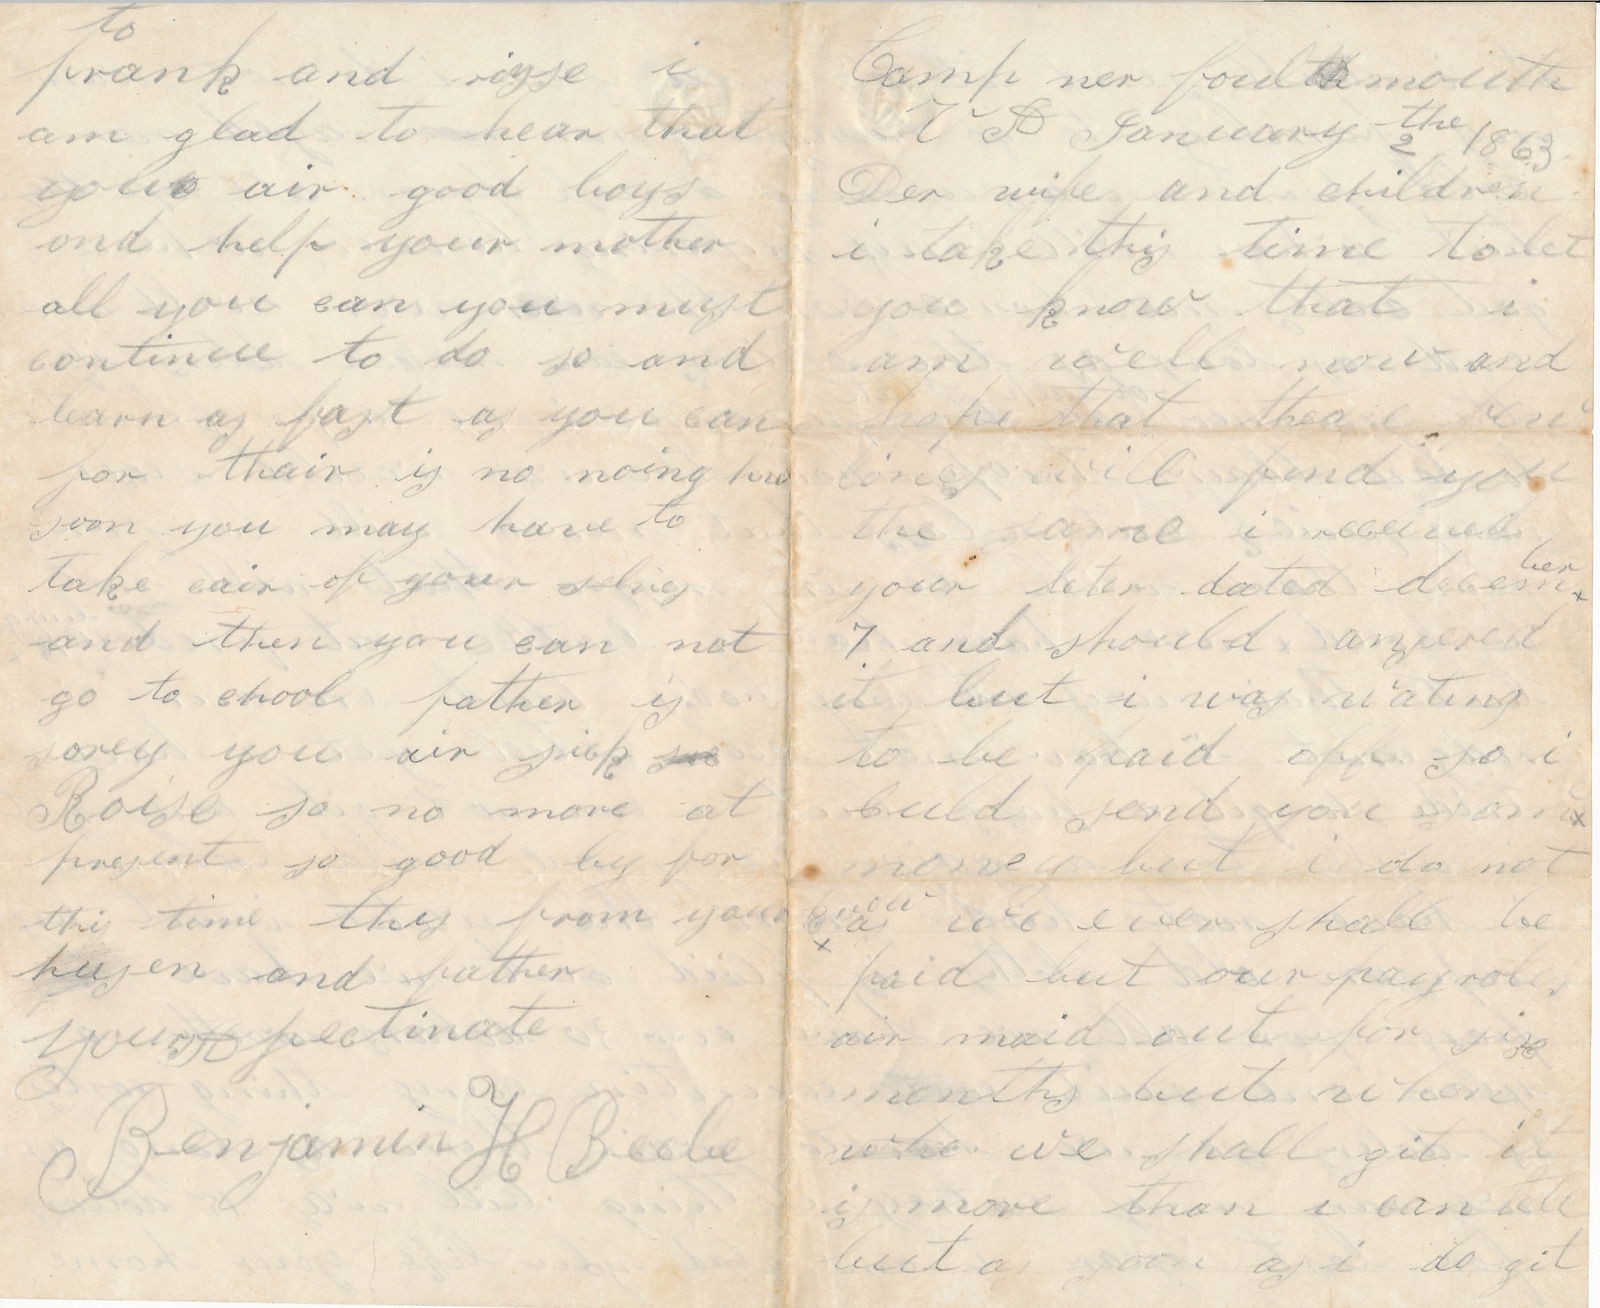 Camp ner foulmouth
VA January the 2 1863
Der wife and children
i take this time to let
you know that i
am well now and
hope that theas few
lines will find you
the same i received
your leter dated december
7 and should anzered
it but i was wating
to be paid off so i
culd send you som
money but i do not
know as we ever shall be
paid but our payroles
air maid out for six
months but when
we shall git it
is more than i can tell
but as soon as i do git
to
frank and riyse i
am glad to hear that
you air good boys
and help your mother
all you can you must
continue to do so and
learn as fast as you can
for thair is no noing how
soon you may have to
take cair of your selves
and then you can not
go to chool father is
sorey you air sick
Roise so no more at
present so good by for
this time this from your
husen and father
your fectinate
Benjamin H Beebe